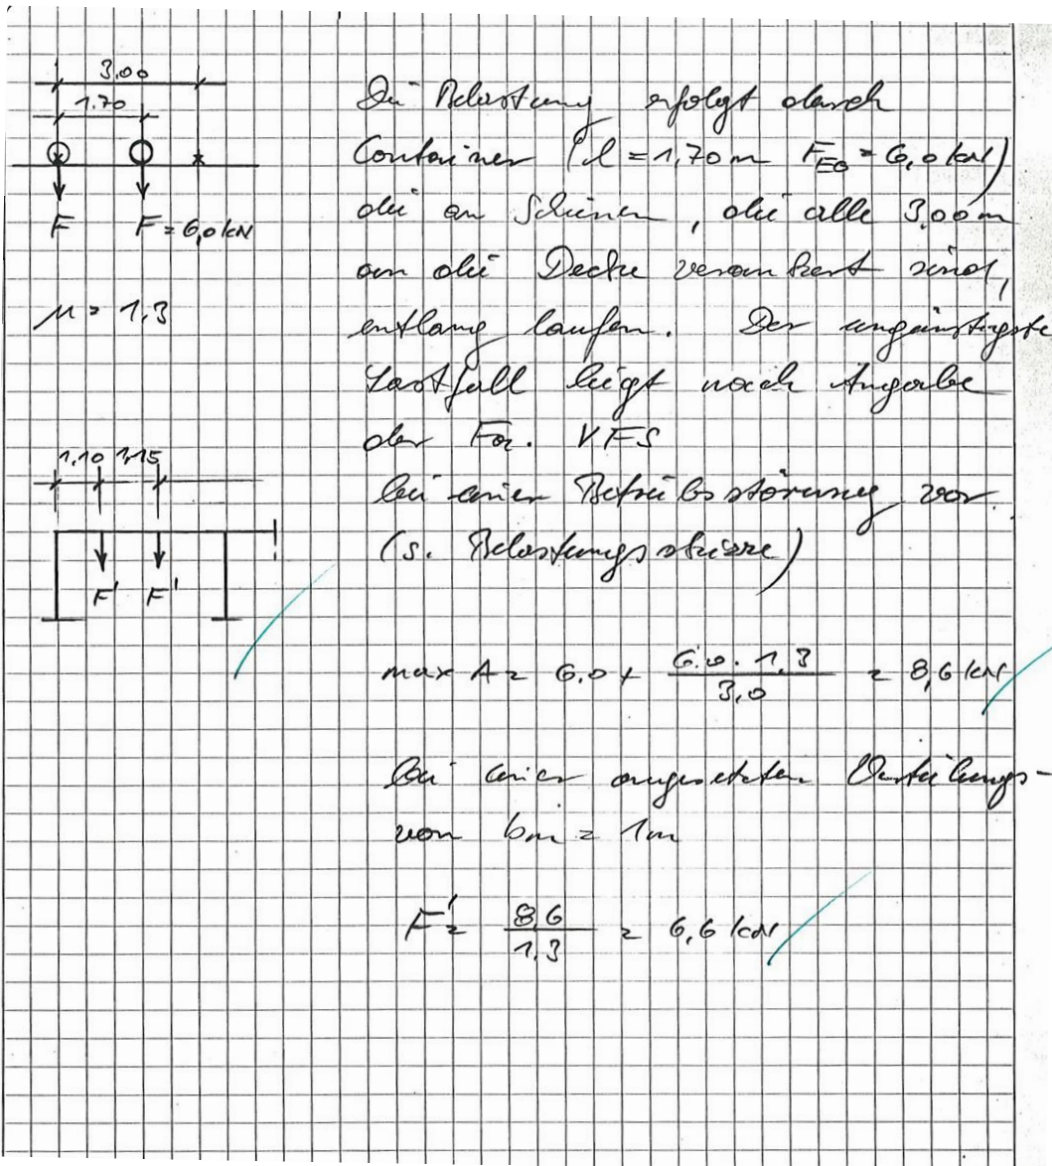 3,00
1.70
F F = 6,0 kN
μ = 1,3
Die Belastung erfolgt durch
Container (l = 1,70 m F_EO = 6,0 kN)
die an Schienen, die alle 3,00 m
an die Decke verankert sind,
entlang laufen. Der ungünstigste
Lastfall liegt nach Angabe
der Fa. VFS
bei einer Betriebsstörung vor.
(s. Belastungsskizze)
1,10 1,15
F' F'
max A = 6.0 + 6.0 · 1,3 / 3,0 = 8,6 kN
bei einer angesetzten Verteilungs-
von bm = 1m
F' = 8,6 / 1,3 = 6,6 kN